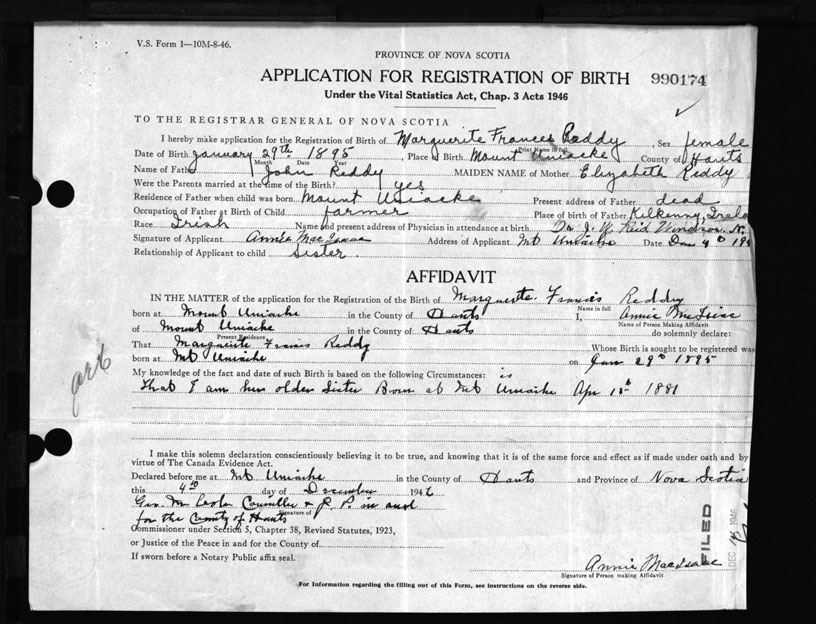 V.S. Form 1—10M-8-46.
PROVINCE OF NOVA SCOTIA
APPLICATION FOR REGISTRATION OF BIRTH 990174
Under the Vital Statistics Act, Chap. 3 Acts 1946
TO THE REGISTRAR GENERAL OF NOVA SCOTIA
I hereby make application for the Registration of Birth of Marguerite Frances Reddy, Sex female
Print Name in full
Date of Birth January 29th 1895, Place of Birth Mount Uniacke County of Hants
Month Date Year
Name of Father John Reddy MAIDEN NAME of Mother Elizabeth Reddy
Were the Parents married at the time of the Birth? yes
Residence of Father when child was born Mount Uniacke Present address of Father dead
Occupation of Father at Birth of Child farmer Place of birth of Father Kilkenny, Irela
Race Irish Name and present address of Physician in attendance at birth Dr. J. W. Reid Windsor. N.
Signature of Applicant Annie MacIsaac Address of Applicant Mt Uniacke Date Dec 4th 19
Relationship of Applicant to child Sister.
AFFIDAVIT
IN THE MATTER of the application for the Registration of the Birth of Marguerite Francis Reddy
Name in full
born at Mount Uniacke in the County of Hants I, Annie McIsaac
Name of Person Making Affidavit
of Mount Uniacke in the County of Hants do solemnly declare:
Present Residence
That Marguerite Francis Reddy Whose Birth is sought to be registered was
born at Mt Uniacke on Jan 29th 1895
My knowledge of the fact and date of such Birth is based on the following Circumstances: is
that I am her older Sister Born at Mt Uniacke Apr 1881
I make this solemn declaration conscientiously believing it to be true, and knowing that it is of the same force and effect as if made under oath and by
virtue of The Canada Evidence Act.
Declared before me at Mt Uniacke in the County of Hants and Province of Nova Scotia
this 4th day of December 1946
Geo Councillor & J. P. in and
Signature of
for the County of Hants
Commissioner under Section 5, Chapter 38, Revised Statutes, 1923,
or Justice of the Peace in and for the County of
If sworn before a Notary Public affix seal.
Annie MacIsaac
Signature of Person making Affidavit
For Information regarding the filling out of this Form, see instructions on the reverse side.
FILED
DEC 1946